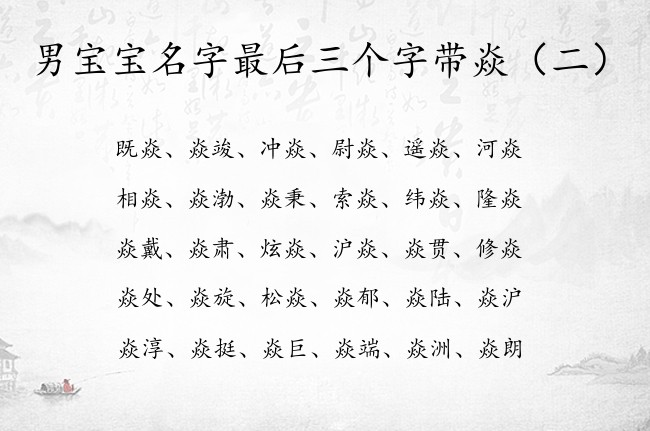 男宝宝名字最后三个字带焱（二）
既焱、焱竣、冲焱、尉焱、遥焱、河焱
相焱、焱渤、焱秉、索焱、纬焱、隆焱
焱戴、焱肃、炫焱、沪焱、焱贯、修焱
焱处、焱旋、松焱、焱郁、焱陆、焱沪
焱淳、焱挺、焱巨、焱端、焱洲、焱朗